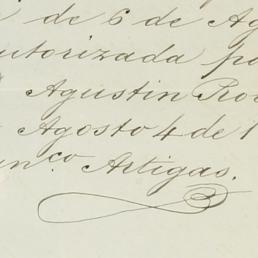 de 6 de Ag
utorizada po
Agustin Ro
Agosto 4 de 1
nco Artigas.